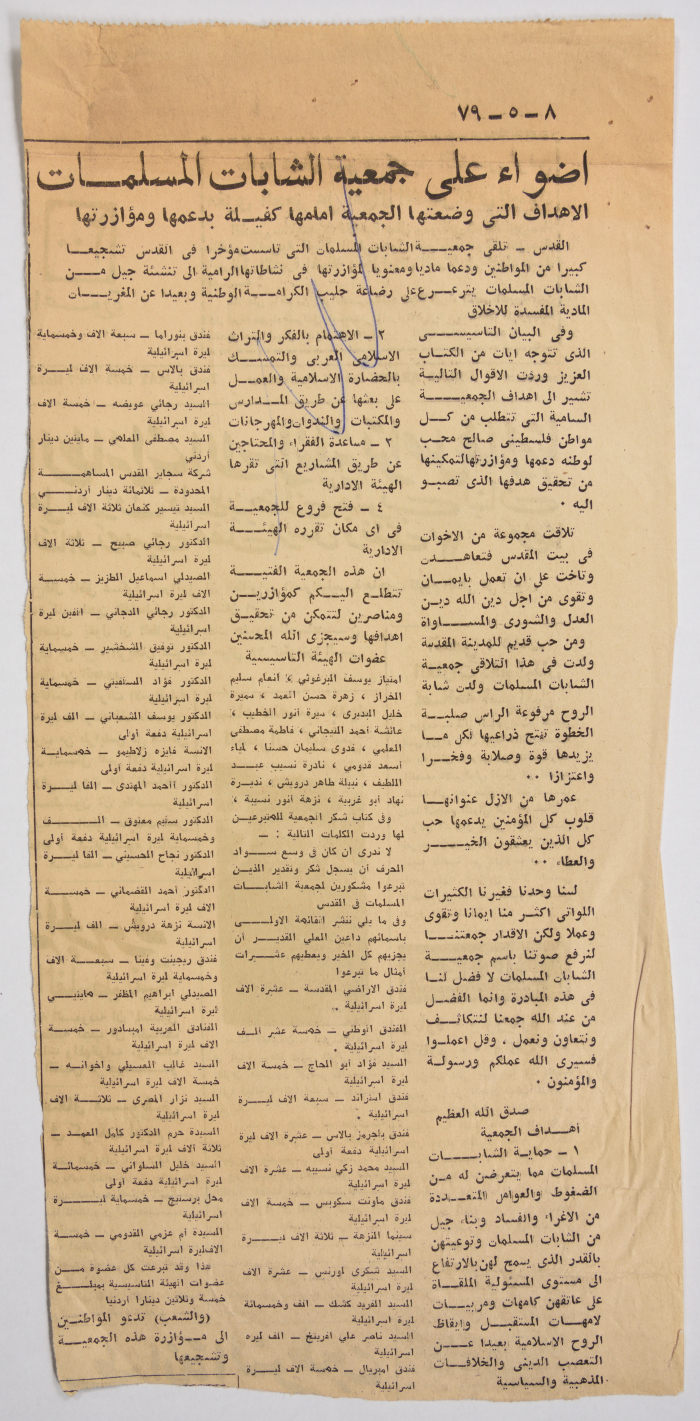 ٨ــ٥ــ٧٩
اضواء على جمعية الشابات المسلمـــات
الاهداف التى وضعتها الجمعية امامها كفيـلة بدعمها ومؤازرتها
القدس ــ تلقى جمعيـــة الشابات المسلمات التى تاسست مؤخرا فى القدس تشجيعـــا
كبيرا من المواطنين ودعما ماديا ومعنويا لمؤازرتها فى نشاطاتها الرامية الى تنشئة جيل مـــن
الشابات المسلمات يترعـــرع على رضاعة حليب الكرامـــة الوطنية وبعيدا عن المغريـــات
المادية المفسدة للاخلاق
وفى البيان التاسيســـى
الذى تتوجه ايات من الكتـاب
العزيز وردت الاقوال التاليـة
تشير الى اهداف الجمعيـــة
السامية التى تتطلب من كـــل
مواطن فلسطينى صالح محـب
لوطنه دعمها ومؤازرتها لتمكينها
من تحقيق هدفها الذى تصبـو
اليه ٠
تلاقت مجموعة من الاخوات
فى بيت المقدس فتعاهـــدن
وتاخت على ان تعمل بايمـــان
وتقوى من اجل دين الله ديـن
العدل والشورى والمســـاواة
ومن حب قديم للمدينة المقدسة
ولدت فى هذا التلاقى جمعيـة
الشابات المسلمات ولدت شابة
الروح مرفوعة الراس صلبـــة
الخطوة تفتح ذراعيها لكل مـــا
يزيدها قوة وصلابة وفخـــرا
واعتزازا ٠٠
عمرها من الازل عنوانهـــا
قلوب كل المؤمنين يدعمها حب
كل الذين يعشقون الخيـــر
والعطاء ٠٠
لسنا وحدنا فغيرنا الكثيرات
اللواتى اكثـر منا ايمانا وتقوى
وعملا ولكن الاقدار جمعتنـــا
لنرفع صوتنا باسم جمعيـــة
الشابات المسلمات لا فضل لنـا
فى هذه المبادرة وانما الفضـل
من عند الله جمعنا لنتكاتـــف
ونتعاون ونعمل ، وقل اعملـوا
فسيرى الله عملكم ورسولـــه
والمؤمنون ٠
صدق الله العظيم
أهـــداف الجمعية
١ ــ حماية الشابـــات
المسلمات مما يتعرضن له مـن
الضغوط والعوامل المتعـــددة
من الاغراء والفساد وبناء جيل
من الشابات المسلمات وتوعيتهن
بالقدر الذى يسمح لهن بالارتفاع
الى مستوى المسئولية الملقـاة
على عاتقهن كامهات ومربيـات
لامهـات المستقبـل وايقاظ
الروح الاسلامية بعيدا عـــن
التعصب الدينى والخلافـات
المذهبية والسياسية
٢ ــ الاهتمام بالفكر والتراث
الاسلامى العربى والتمســـك
بالحضارة الاسلامية والعمـــل
على بعثها عن طريق المـــدارس
والمكتبات والندوات والمهرجانات
٣ ــ مساعدة الفقراء والمحتاجين
عن طريق المشاريع التى تقرها
الهيئة الادارية
٤ ــ فتح فروع للجمعيـــة
فى اى مكان تقرره الهيئـــة
الادارية
ان هذه الجمعية الفتيـــة
تتطلـع اليـــكم كمؤازريـــن
ومناصرين لتتمكن من تحقيـق
اهدافها وسيجزى الله المحسنين
عضوات الهيئة التاسيسية
امتياز يوسف البرغوثي ، انعام سليم
الخراز ، زهرة حسن العمد ، سميرة
خليل البديرى ، سيرة انور الخطيب ،
عائشة احمد ، فاطمة مصطفى
المعلمى ، فدوى سليمان حسنا ، لمياء
أسعد قدومى ، نادرة نسيب عبـــد
اللطيف ، نبيلة طاهر درويش ، نديـرة
نهاد أبو غربية ، نزهة انور نسيبة ،
وفى كتاب شكر الجمعية للمتبرعيـن
لها وردت الكلمات التالية : ــ
لا ندرى ان كان فى وسع ســـواد
الحرف أن يسجل شكر وتقدير الذيـن
تبرعوا مشكورين لجمعية الشابـــات
المسلمات فى القدس
وفى ما يلى ننشر القائمة الاولـــى
باسمائهم داعين العلى القديـــر أن
يجزيهم كل الخير ويعطيهم عشـــرات
أمثال ما تبرعوا
فندق الاراضى المقدسة ــ عشرة الاف
ليرة اسرائيلية ٠
الفندق الوطنى ــ خمسة عشر الـف
ليرة اسرائيلية ٠
السيد فؤاد ابو الحاج ــ خمسة الاف
ليرة اسرائيلية
فندق استراند ــ سبعة الاف ليـــرة
اسرائيلية ٠
فندق بالاس ــ عشرة الاف ليرة
اسرائيلية دفعة أولى
السيد محمد زكى نسيبه ــ عشرة الاف
ليرة اسرائيلية
فندق ماونت سكوبس ــ خمسة الاف
ليرة اسرائيلية
سينما النزهة ــ ثلاثة الاف ليـــرة
اسرائيلية
السيد شكرى لورنس ــ عشرة الاف
ليرة اسرائيلية
السيد الفريد كشك ــ الف وخمسمائة
ليرة اسرائيلية
السيد ناصر على افرينج ــ الف ليره
اسرائيلية
فندق امبريال ــ خمسة الاف ليـــرة
اسرائيلية
فندق بنوراما ــ سبعة الاف وخمسماية
ليرة اسرائيلية
فندق بالاس ــ خمسة الاف ليـــرة
اسرائيلية
السيد رجائى عويضه ــ خمسة الاف
ليرة اسرائيلية
السيد مصطفى ــ مايتين دينار
أردنى
شركة سجاير القدس المساهمـــة
المحدودة ــ ثلاثمائة دينار أردنـــى
السيد تيسير كنعان ثلاثة الاف ليـــرة
اسرائيلية
الدكتور رجائى صبيح ــ ثلاثة الاف
ليرة اسرائيلية
الصيدلى اسماعيل الطزيز ــ خمســـة
الاف ليرة اسرائيلية
الدكتور رجائى الدجانى ــ الفين ليرة
اسرائيلية
الدكتور توفيق الشخشير ــ خمسماية
ليرة اسرائيلية
الدكتور فؤاد ــ خمسماية
ليرة اسرائيلية
الدكتور يوسف الشعبانى ــ الف ليرة
اسرائيلية دفعة أولى
الانسة فايزه زلاطيمو ــ خمسمايـة
ليرة اسرائيلية دفعة أولى
الدكتور احمد المهتدى ــ الفا ليـــرة
اسرائيلية
الدكتور سليم معتوق ــ الـــف
وخمسماية ليرة اسرائيلية دفعة أولى
الدكتور نجاح الحسينى ــ الفا ليـــرة
اسرائيلية
الدكتور أحمد القضمانى ــ خمســـة
الاف ليرة اسرائيلية
الانسة نزهة درويش ــ الف ليـــرة
اسرائيلية
فندق ريجينت وفينا ــ سبعـــة الاف
وخمسماية ليرة اسرائيلية
الصيدلى ابراهيم المظفر ــ مايتيـــى
ليرة اسرائيلية
الفنادق العربية امبسادور ــ خمســـة
الاف ليرة اسرائيلية
السيد غالب العسيلى واخوانـــه ــ
خمسة الاف ليرة اسرائيلية
السيد نزار المصرى ــ ثلاثـــة الاف
ليرة اسرائيلية
السيدة حرم الدكتور كامل العمـد ــ
ثلاثة الاف ليرة اسرائيلية
السيد خليل السلوانى ــ خمسمائـة
ليرة اسرائيلية دفعة أولى
محل برستيج ــ خمسماية ليـــرة
اسرائيلية
السيدة أم عزمى القدومى ــ خمســـة
الاف ليرة اسرائيلية
هذا وقد تبرعت كل عضوة مـــن
عضوات الهيئة التاسيسية بمبلـــغ
خمسة وثلاثين دينارا أردنيا
(والشعب) تدعو المواطنـــين
الى مـــؤازرة هذه الجمعيـــة
وتشجيعها